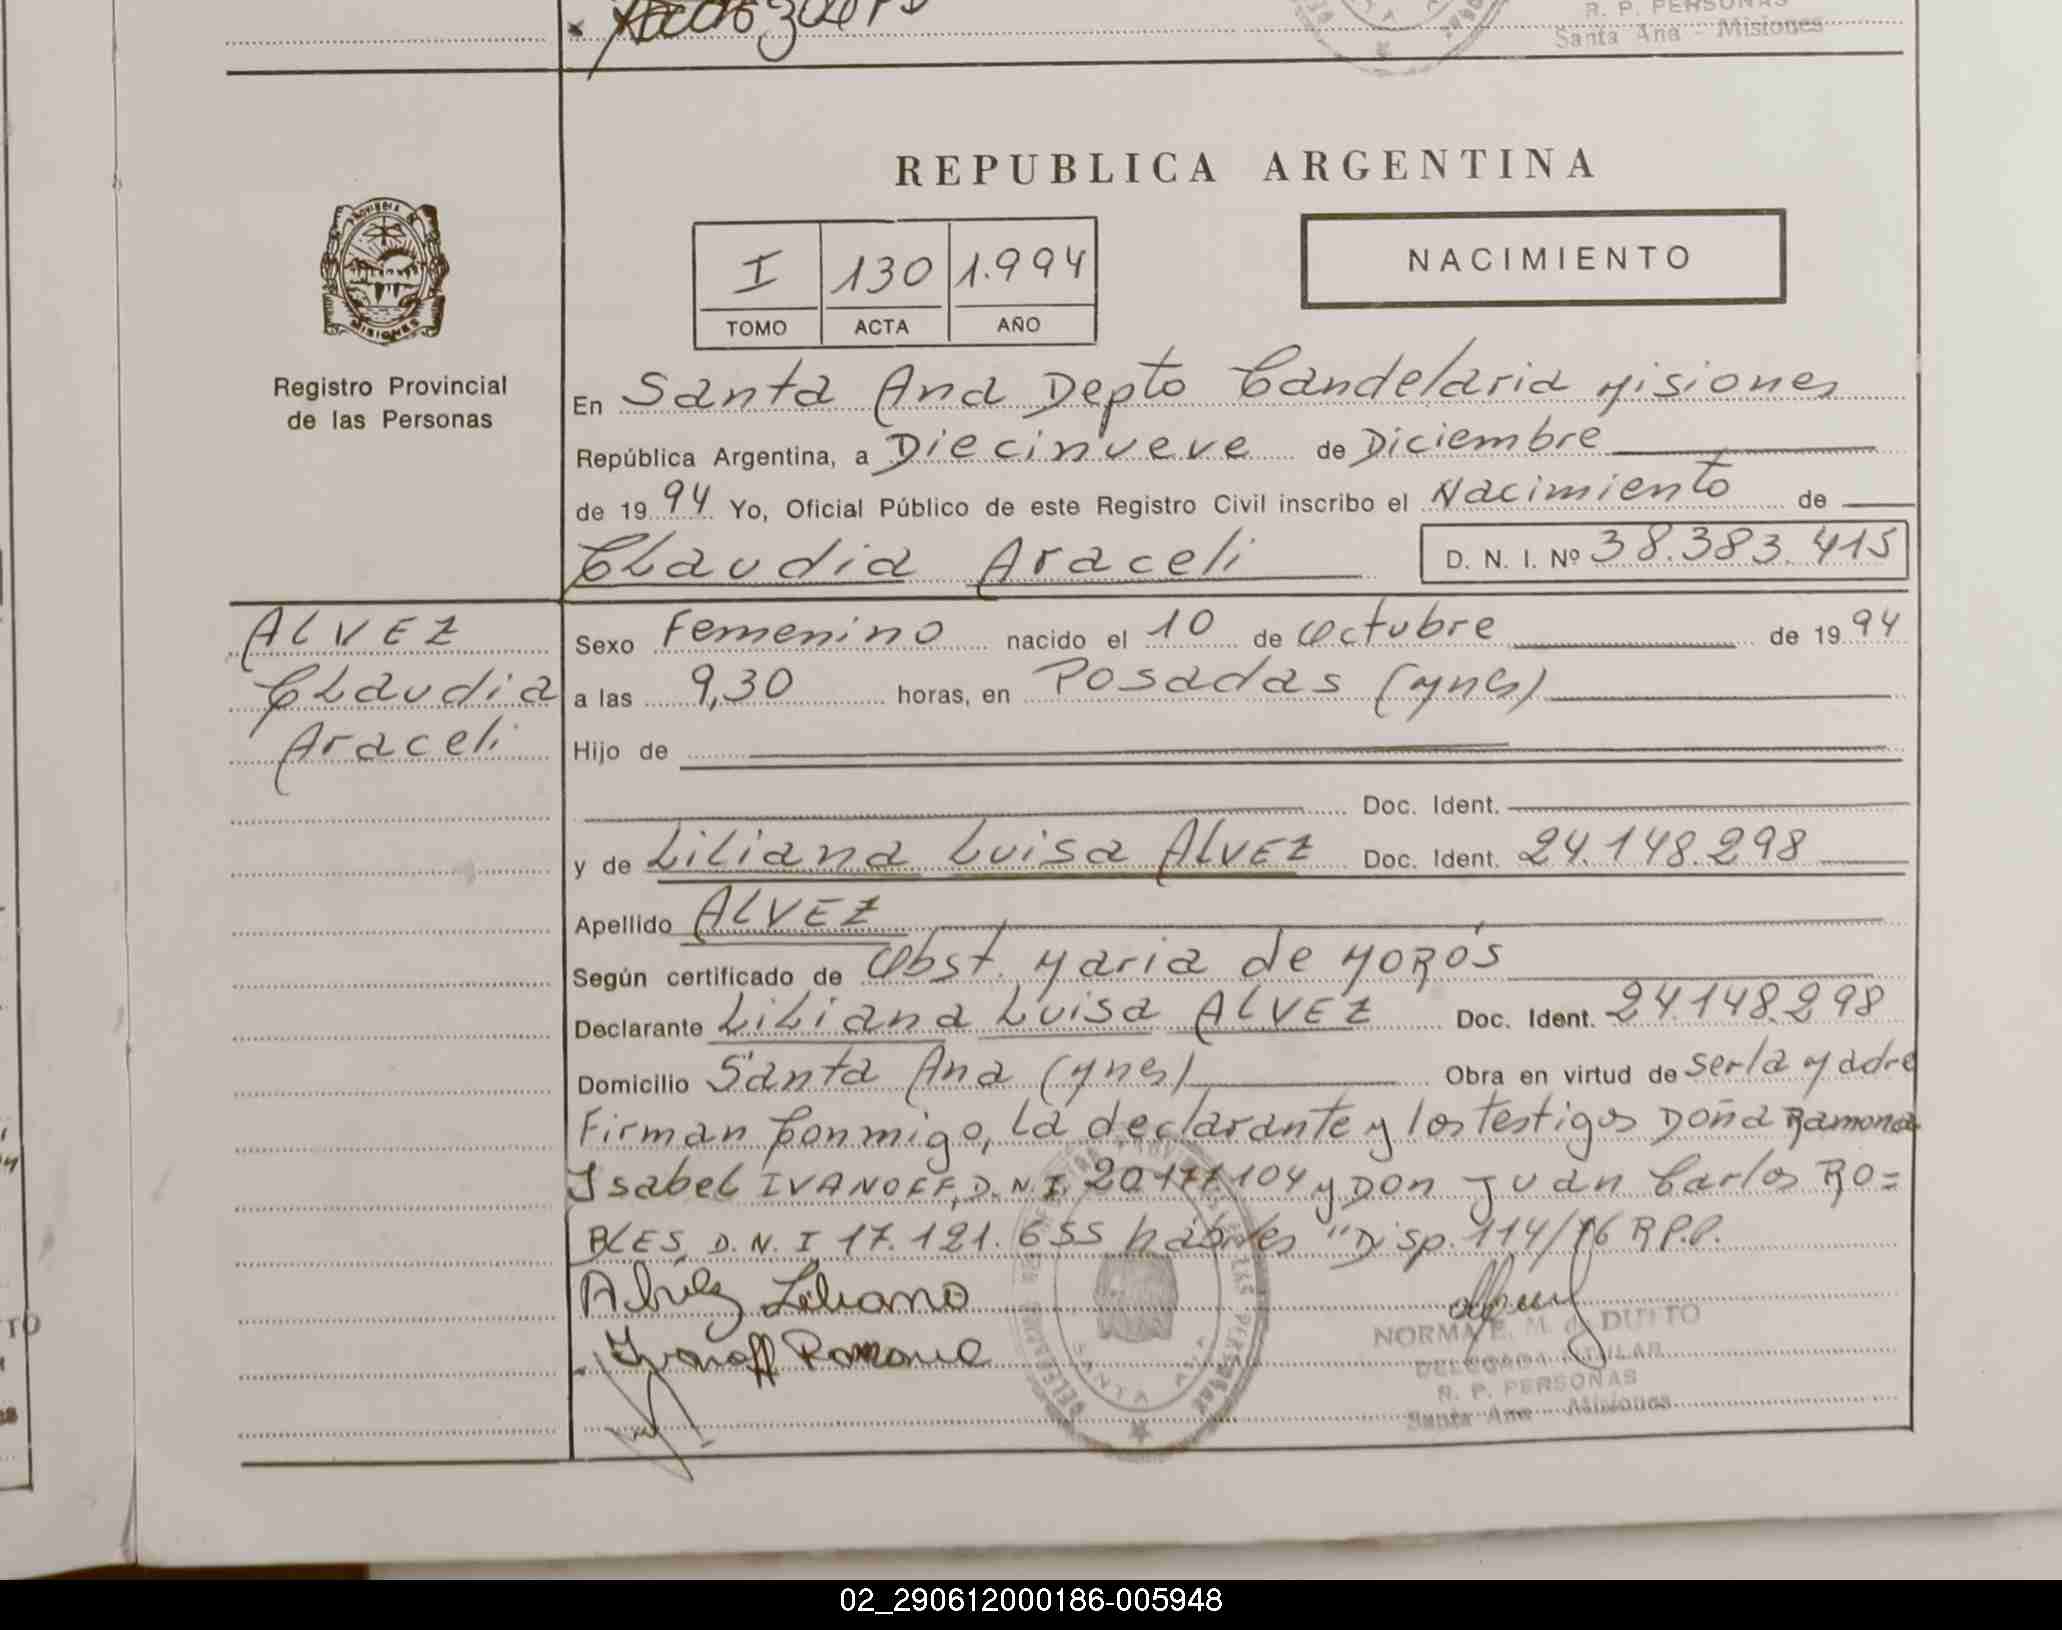 R. P. PERSONAS
Santa Ana - Misiones
REPUBLICA ARGENTINA
I 130 1.994
TOMO ACTA AÑO
NACIMIENTO
PROVINCIA DE
MISIONES
Registro Provincial
de las Personas
En Santa Ana Depto Candelaria Misiones
República Argentina, a Diecinueve de Diciembre
de 1994 Yo, Oficial Público de este Registro Civil inscribo el Nacimiento de
Claudia Araceli D. N. I. Nº 38.383.415
ALVEZ
Claudia
Araceli
Sexo Femenino nacido el 10 de Octubre de 1994
a las 9,30 horas, en Posadas (Mnes)
Hijo de
Doc. Ident.
y de Liliana Luisa ALVEZ Doc. Ident. 24.148.298
Apellido ALVEZ
Según certificado de Obst. Maria de Morós
Declarante Liliana Luisa ALVEZ Doc. Ident. 24.148.298
Domicilio Santa Ana (Mnes) Obra en virtud de ser la Madre
Firman Conmigo, la declarante y los testigos Doña Ramona
Isabel IVANOFF, D.N.I. 20.177.104 y Don Juan Carlos RO=
BLES, D.N.I 17.121.655 hábiles "Disp. 114/76 R.P.P.
Alvez Liliana
Ivanoff Ramona
NORMA E. M. de DUTTO
DELEGADA TITULAR
R. P. PERSONAS
Santa Ana - Misiones
SANTA ANA
02_290612000186-005948